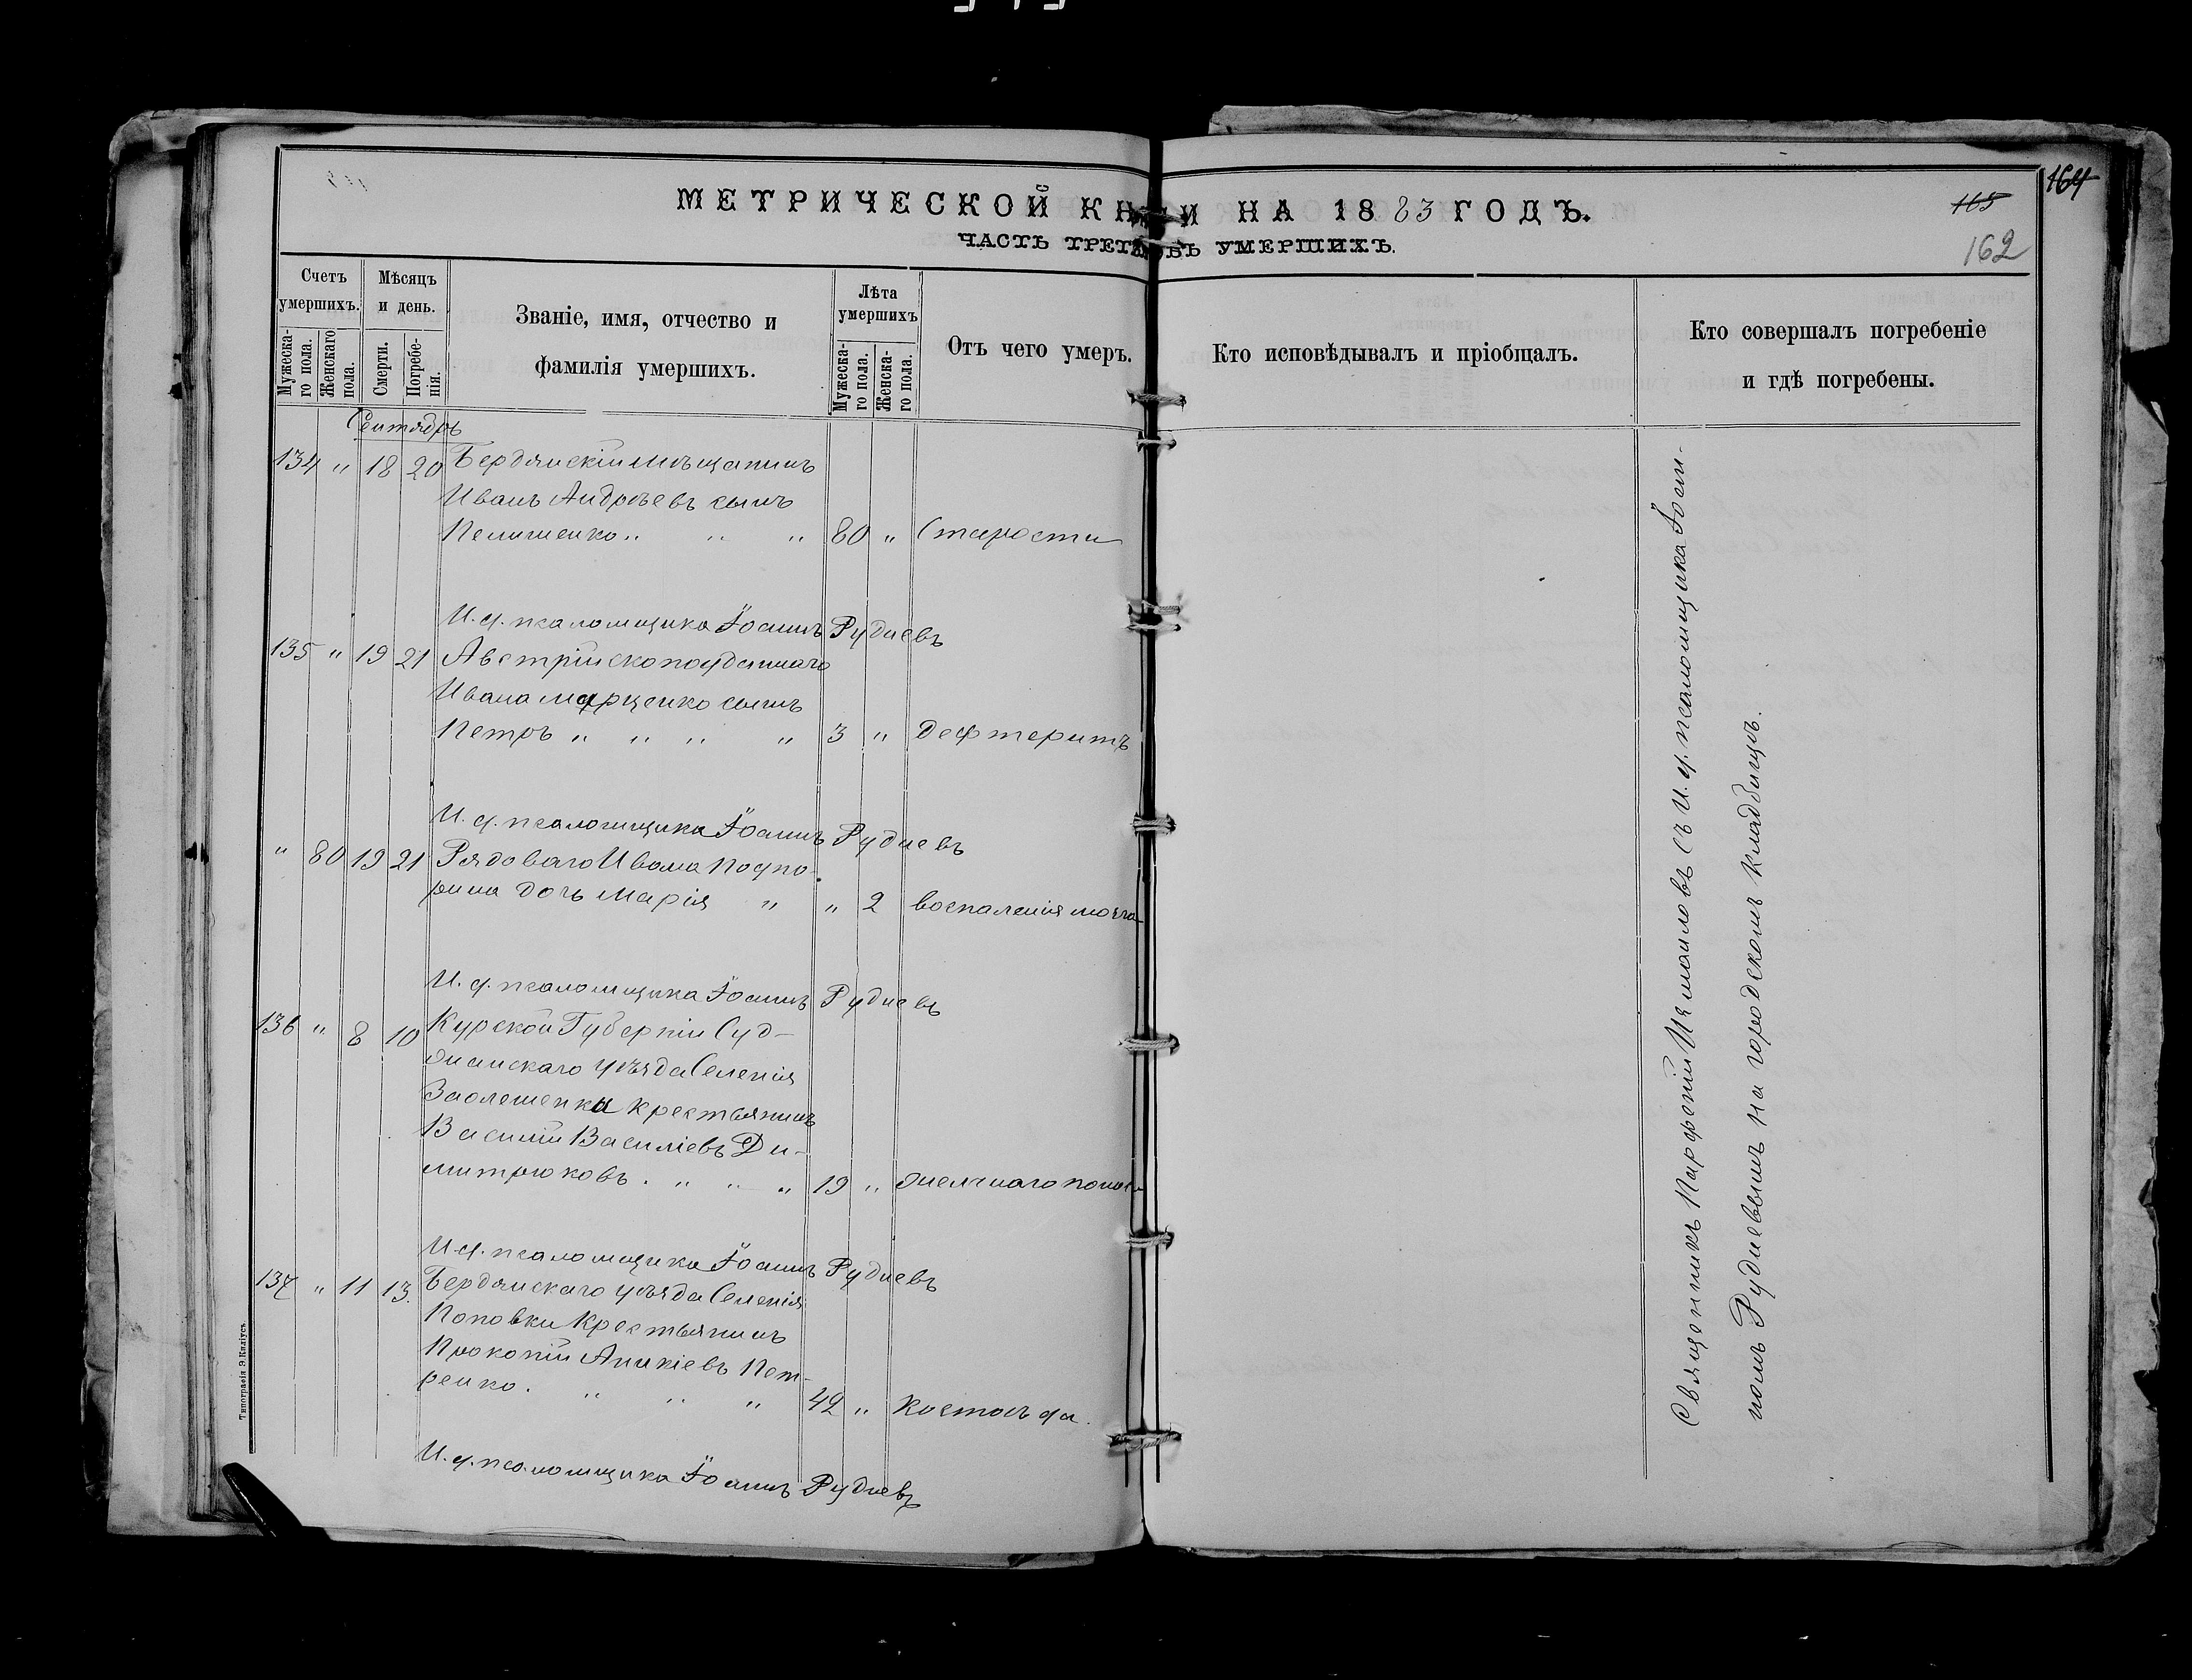 МЕТРИЧЕСКОЙ КНИГИ НА 1883 ГОДЪ.
ЧАСТЬ ТРЕТЬЯ, ОБЪ УМЕРШИХЪ.
164
165
162
Счетъ умершихъ.
Мужеска-го пола.
Женскаго пола.
Мѣсяцъ и день.
Смерти.
Погребе-нія.
Званіе, имя, отчество и
фамилія умершихъ.
Лѣта умершихъ
Мужеска-го пола.
Женска-го пола.
Отъ чего умеръ.
Кто исповѣдывалъ и пріобщалъ.
Кто совершалъ погребеніе
и гдѣ погребены.
Сентябрь
134 " 18 20 Бердянскій мѣщанинъ
Иванъ Андреевъ сынъ
Пелишенко " " " 80 " Старости
И. д. псаломщика Іоаннъ Рудневъ
135 " 19 21 Австрійскоподданнаго
Ивана Марценко сынъ
Петръ " " " " 3 " дефтеритъ
И. д. псаломщика Іоаннъ Рудневъ
" 80 19 21 Рядоваго Ивана Подпо-
рина дочь Марія " " 2 воспаленія мозга
И. д. псаломщика Іоаннъ Рудневъ
136 " 8 10 Курской Губерніи Суд-
жанскаго уѣзда Селенія
Заолешенка крестьянинъ
Василій Василіевъ Ди-
митрюковъ. " " " 19 " желчнаго
И. д. псаломщика Іоаннъ Рудневъ
137 " 11 13. Бердянскаго уѣзда Селенія
Поповки Крестьянинъ
Прокопій Аникіевъ Пет-
ренко. " " " 42 " Костоѣда.
И. д. псаломщика Іоаннъ Рудневъ
Священникъ Парфеній Измаиловъ съ И. д. псаломщика Іоан-
номъ Рудневымъ на городскомъ кладбищѣ.
Типографія Э. Киліусъ.